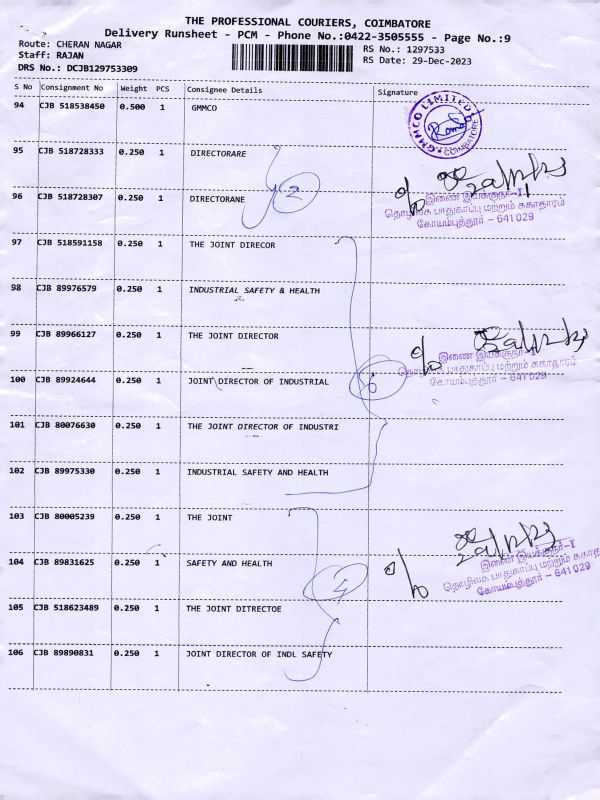 THE PROFESSIONAL COURIERS, COIMBATORE
Delivery Runsheet - PCM - Phone No.:0422-3505555 - Page No.:9
Route: CHERAN NAGAR
RS No.: 1297533
Staff: RAJAN
RS Date: 29-Dec-2023
DRS No.: DCJB129753309
S No Consignment No Weight PCS Consignee Details Signature
94 CJB 518538450 0.500 1 GMMCO
GMMCO LIMITED
COIMBATORE
95 CJB 518728333 0.250 1 DIRECTORARE
96 CJB 518728307 0.250 1 DIRECTORANE
2
இணை இயக்குநர்-I
தொழிலக பாதுகாப்பு மற்றும் சுகாதாரம்
கோயம்புத்தூர் – 641029
97 CJB 518591158 0.250 1 THE JOINT DIRECOR
98 CJB 89976579 0.250 1 INDUSTRIAL SAFETY & HEALTH
99 CJB 89966127 0.250 1 THE JOINT DIRECTOR
இணை இயக்குநர்-I
தொழிலக பாதுகாப்பு மற்றும் சுகாதாரம்
கோயம்புத்தூர் – 641029
100 CJB 89924644 0.250 1 JOINT DIRECTOR OF INDUSTRIAL
6
101 CJB 80076630 0.250 1 THE JOINT DIRECTOR OF INDUSTRI
102 CJB 89975330 0.250 1 INDUSTRIAL SAFETY AND HEALTH
103 CJB 80005239 0.250 1 THE JOINT
இணை இயக்குநர்-I
தொழிலக பாதுகாப்பு மற்றும் சுகாதாரம்
கோயம்புத்தூர் – 641029
104 CJB 89831625 0.250 1 SAFETY AND HEALTH
4
105 CJB 518623489 0.250 1 THE JOINT DITRECTOE
106 CJB 89890831 0.250 1 JOINT DIRECTOR OF INDL SAFETY